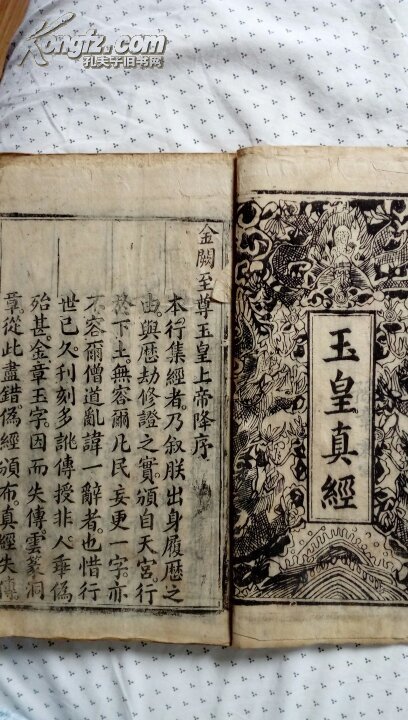 Kongfz.com
孔夫子旧书网
玉皇真經
金闕至尊玉皇上帝降序
本行集經者乃叙朕出身履歷之
由與歷劫修證之實頒自天宮行
於下土無容爾凡民妄更一字亦
不容爾僧道亂諱一辭者也惜行
世已久刋刻多訛傳授非人乖偽
殆甚金章玉字因而失傳雲篆洞
章從此盡錯偽經頒布真經失傳